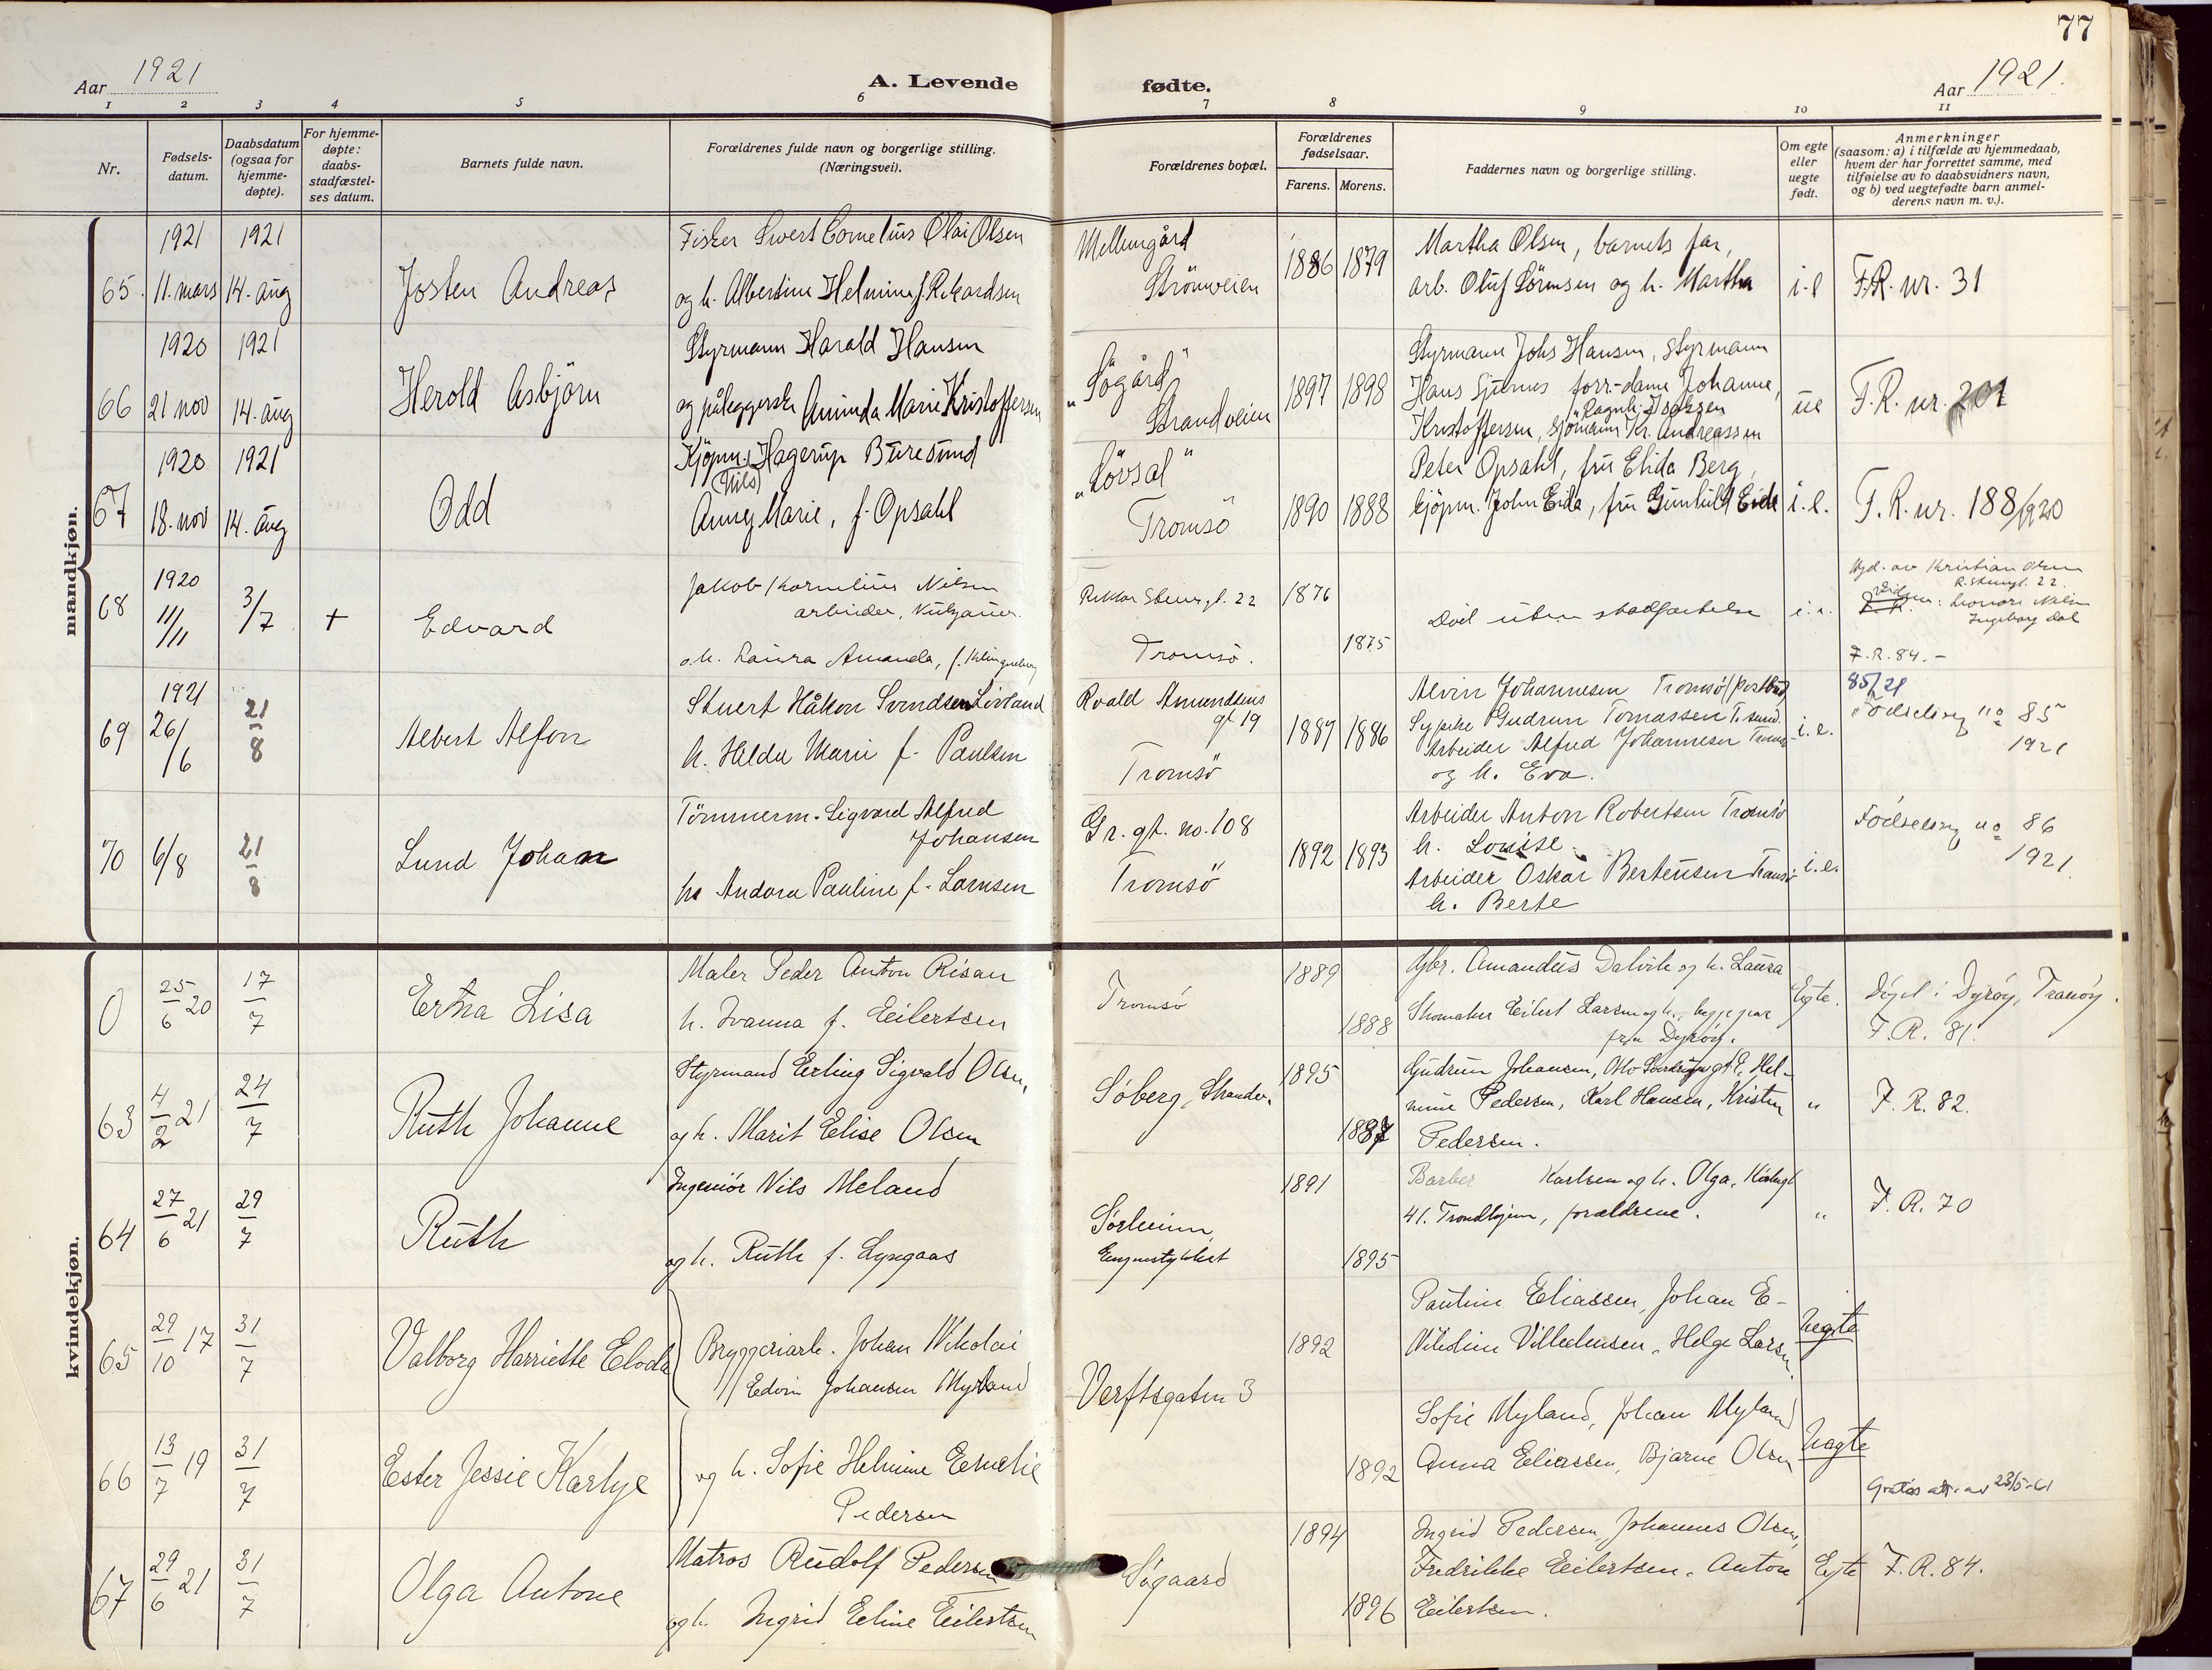 77
Aar 1921
A. Levende
fødte.
Aar 1921.
1 2 3 4 5 6 7 8 9 10 11
Nr.
Fødsels-
datum.
Daabsdatum
(ogsaa for
hjemme-
døpte).
For hjemme-
døpte:
daabs-
stadfæstel-
ses datum.
Barnets fulde navn.
Forældrenes fulde navn og borgerlige stilling.
(Næringsvei).
Forældrenes bopæl.
Forældrenes
fødselsaar.
Farens. Morens.
Faddernes navn og borgerlige stilling.
Om egte
eller
uegte
født.
Anmerkninger
(saasom: a) i tilfælde av hjemmedaab,
hvem der har forrettet samme, med
tilføielse av to daabsvidners navn,
og b) ved uegtefødte barn anmel-
derens navn m. v.).
mandkjøn.
65. 1921 11. mars
1921 14. aug
Josten Andreas
Fisker Sivert Cornelius Olai Olsen
og h. Albertine Helmine f. Rikardsen
Mellemgård
Strömveien
1886 1879
Martha Olsen, barnets far,
arb. Oluf Sörensen og h. Martha
i.e
F.R. nr. 31
66 1920 21 nov
1921 14. aug
Herold Asbjörn
Styrmann Harald Hansen
og påleggerske Aminda Marie Kristoffersen
"Sögård"
Strandveien
1897 1898
Styrmann Johs Hansen, styrmann
Hans Sjursnes forr.-dame Johanne
Ragnh. Isaksen
Kristoffersen, sjömann Kr. Andreassen
ue
F.R. nr. 201
67 1920 18. nov
1921 14. aug
Odd
Kjöpm. Hagerup Buresund
(Nils)
Anney Marie, f. Opsahl
"Lövsal"
Tromsö
1890 1888
Peter Opsahl, fru Elida Berg,
kjöpm. John Eide, fru Gunhild Eide
i.e.
F.R. nr. 188/1920
68 1920 11/11
3/7
+
Edvard
Jakob Kornelius Nilsen
arbeider, Kulgauer.
o.h. Laura Amanda, f. Klingenberg
Rektor Steens g. 22
Tromsö.
1876
1875
Död uten stadfæstelse
i.e.
Hjd. av Kristian Olsen
R. Steensg. 22.
Vidner: Leonore Nilsen
Ingeborg Dal
F.R. 84.-
69 1921 26/6
21/8
Albert Alfon
Stuert Håkon Svendsen Lövland
h. Hilda Marie f. Paulsen
Roald Amundsens
gt 19
Tromsö
1889 1886
Alvin Johannesen Tromsö (Postbud)
Sypike Gudrun Tomassen T. sund.
Arbeider Alfred Johannesen Tromsö
og h. Eva.
i.e.
85/21
Födselsreg no 85
1921
70 6/8
21/8
Lund Johan
Tömmerm. Sigvard Alfred
Johansen
h. Andora Pauline f. Larnsen
Gr. gt. no. 108
Tromsö
1892 1893
Arbeider Anton Robertsen Tromsö
h. Louise.
Arbeider Oskar Berteusen Tromsö
h. Berte
i.e.
Födselsreg no 86
1921.
kvindekjøn.
0 25/6 20
17/7
Erna Lisa
Maler Peder Anton Risan
h. Ivanna f. Eilertsen
Tromsö
1889
1888
Gbr. Amandus Dalvik og h. Laura
Skomaker Eilert Larsen og h., begge par
fra Dyröy.
Egte.
Döpt i Dyröy, Tranöy.
F.R. 81.
63 4/2 21
24/7
Ruth Johanne
Styrmand Erling Sigvald Olsen,
og h. Marit Elise Olsen
Söberg, Strandv.
1895
1887
Gudrun Johansen, Hel-
mine Pedersen, Karl Hansen, Kristen
Pedersen.
"
F.R. 82.
64 27/6 21
29/7
Ruth
Ingeniör Nils Meland
og h. Ruth f. Lyngaas
Sörheim,
1891
1895
Barber Karlsen og h. Olga,
41. Trondhjem, forældrene.
"
F.R. 70
65 29/10 17
31/7
Valborg Harriette Eloda
Bryggeriarb. Johan Nikolai
Edvin Johansen Myland
Verftsgaten 3
1892
Pauline Eliassen, Johan E-
Villedensen, Helge Larsen.
Uegte
66 13/7 19
31/7
Ester Jessie Karlye
og h. Sofie Helmine Emelie
Pedersen
1892
Sofie Myland, Johan Myland
Anna Eliassen, Bjarne Olsen
Uegte
Gratis att. av 23/5-61
67 29/6 21
31/7
Olga Antone
Matros Rudolf Pedersen
og h. Ingrid Eline Eilertsen
Sögaard
1894
1896
Ingrid Pedersen, Johannes Olsen,
Fredrikke Eilertsen, Anton
Eilertsen.
Egte
F.R. 84.